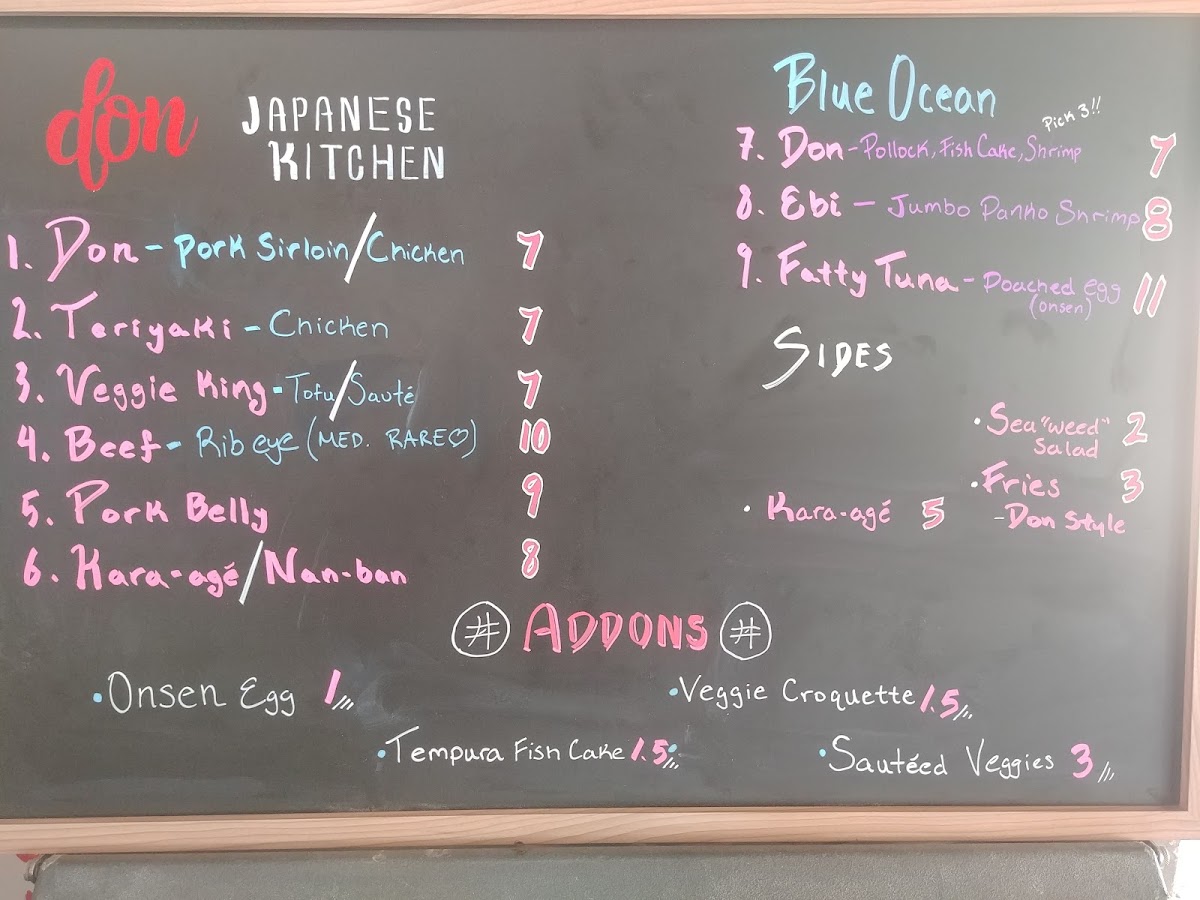 don JAPANESE
KITCHEN
1. Don - Pork Sirloin/Chicken 7
2. Teriyaki - Chicken 7
3. Veggie King - Tofu/Sauté 7
4. Beef - Rib eye (MED. RARE♡) 10
5. Pork Belly 9
6. Kara-agé/Nan-ban 8
Blue Ocean
Pick 3!!
7. Don - Pollock, Fish Cake, Shrimp 7
8. Ebi - Jumbo Panko Shrimp 8
9. Fatty Tuna - Poached egg 11
(onsen)
SIDES
• Sea "weed" 2
Salad
• Fries 3
- Don Style
• Kara-agé 5
# ADDONS #
• Onsen Egg 1
• Veggie Croquette 1.5
• Tempura Fish Cake 1.5
• Sautéed Veggies 3